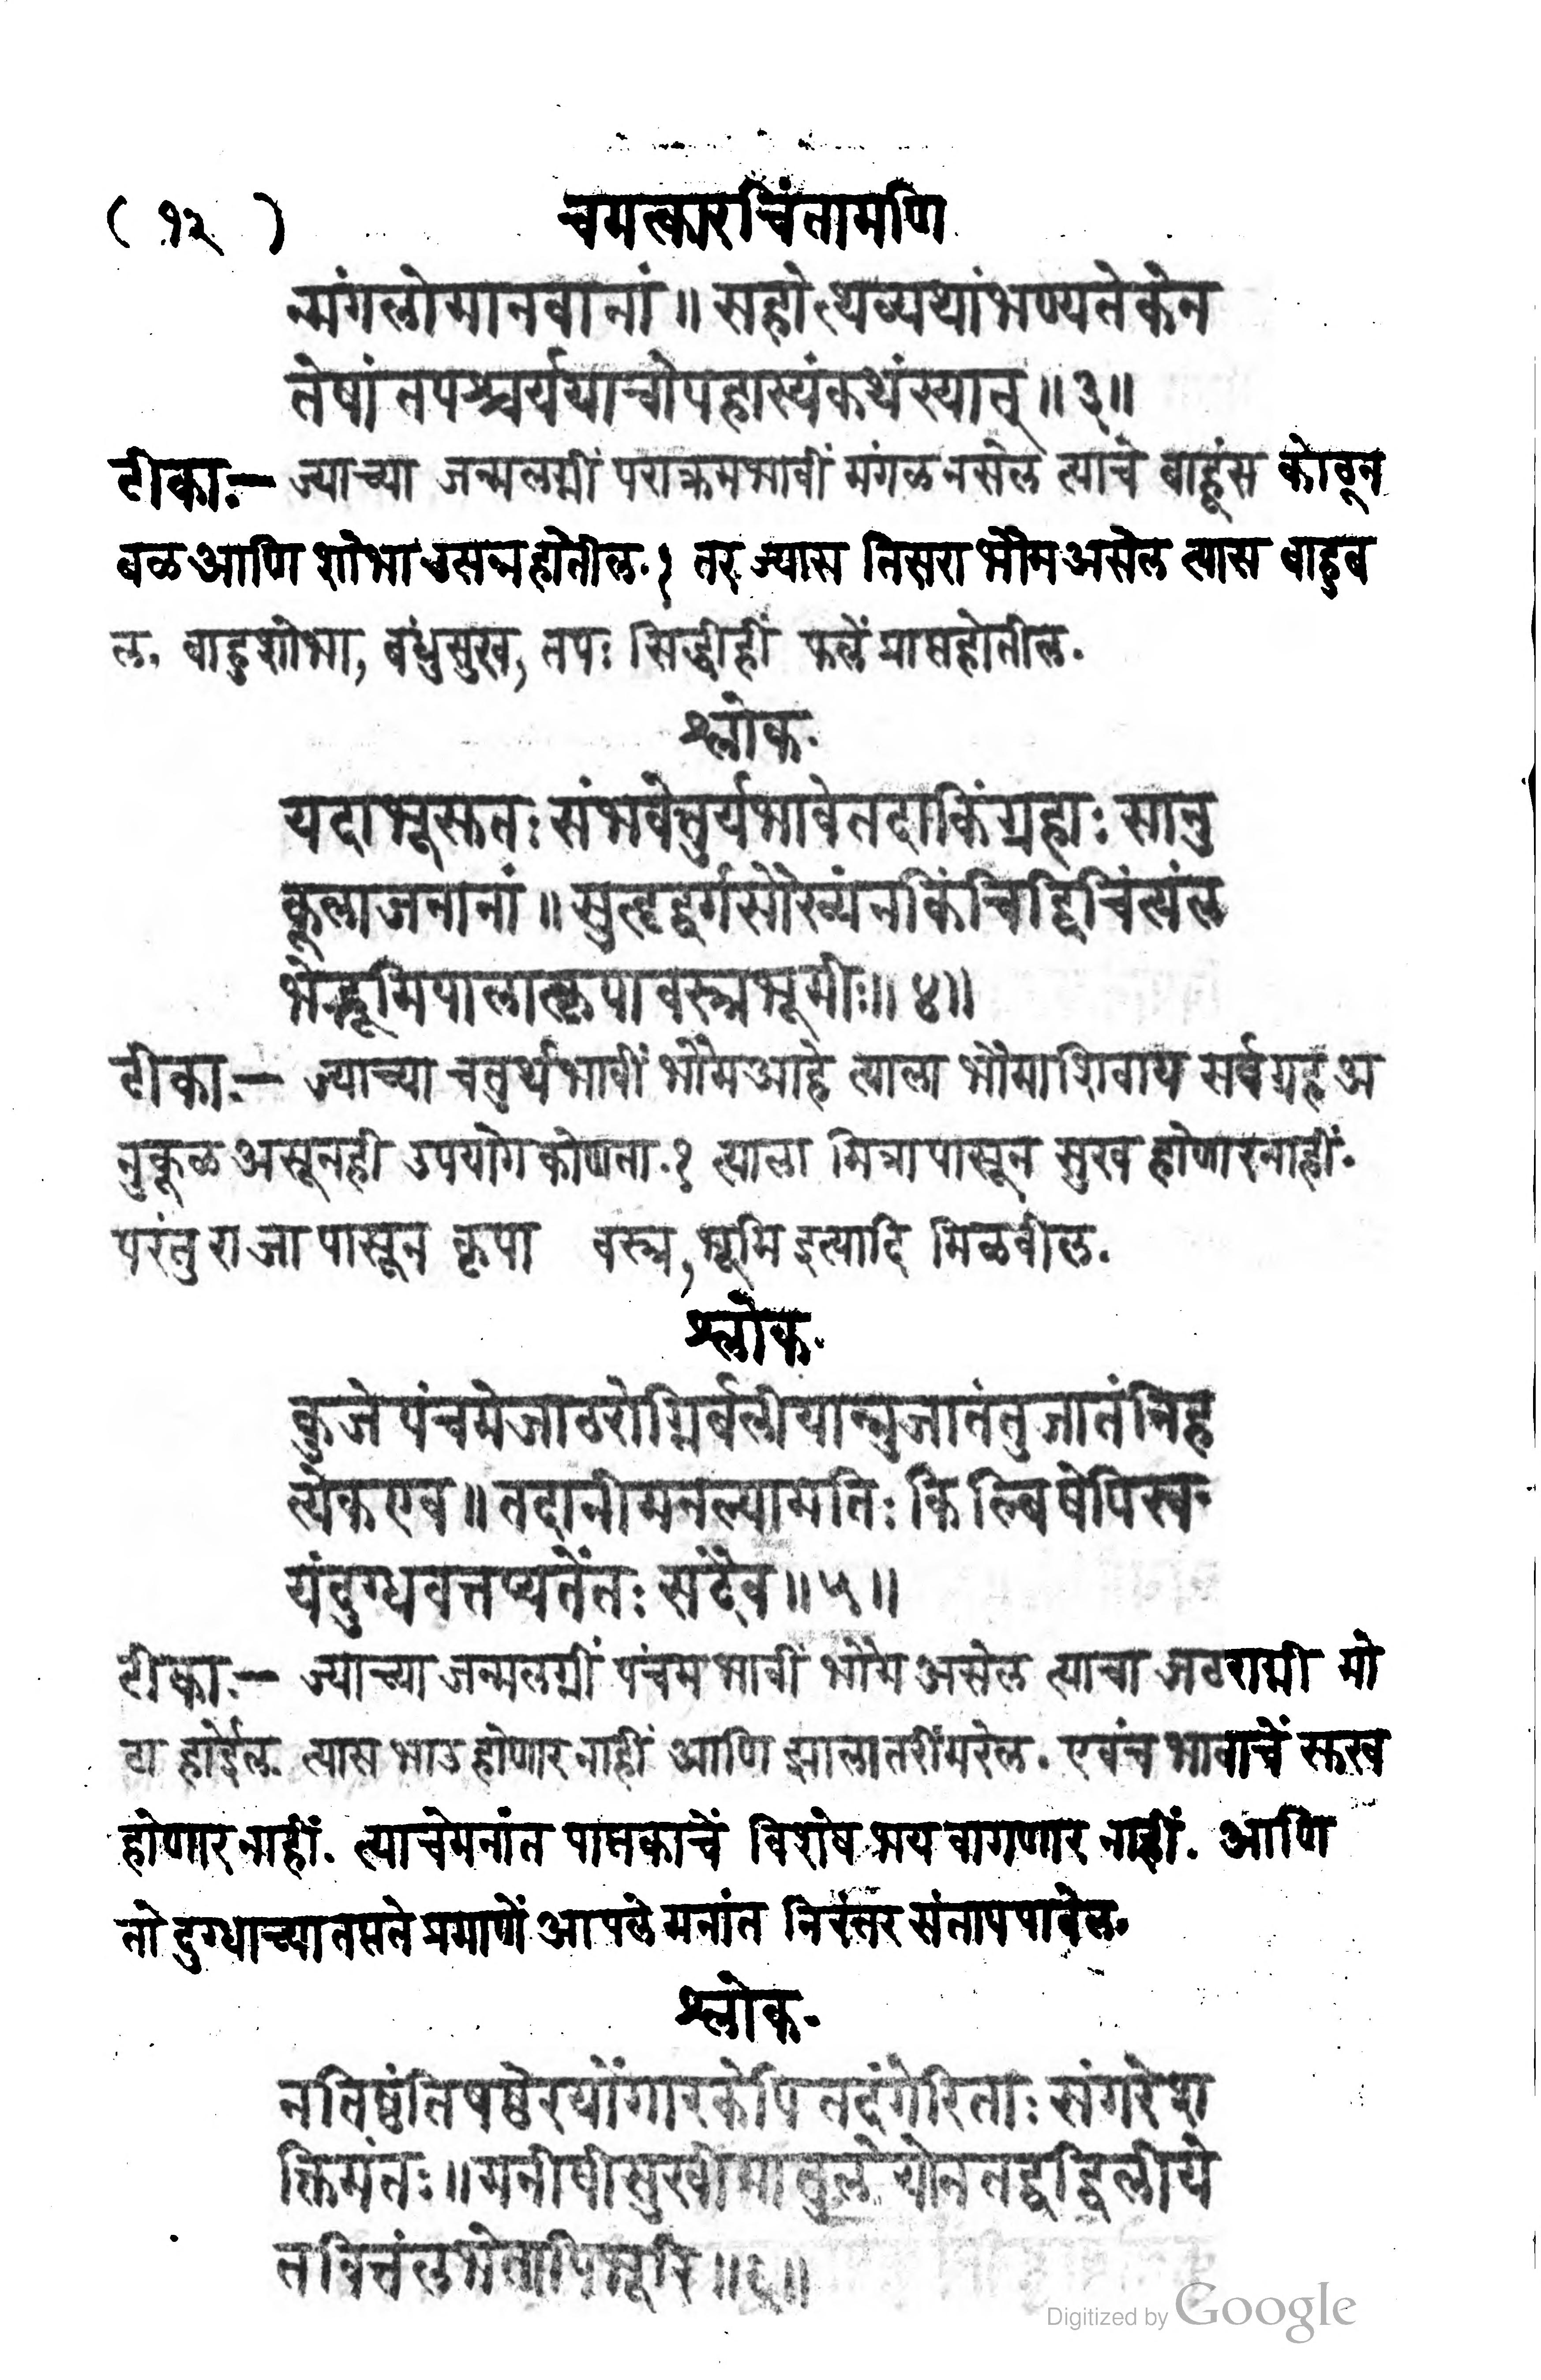 ( १२ ) चमत्कारचिंतामणि
न्मंगलोमानवानां ॥ सहोत्थव्यथांभण्यतेकेन
तेषां तपश्चर्ययाचोपहास्यंकथंस्यात् ॥ ३ ॥
टीका.— ज्याच्या जन्मलग्नीं पराक्रमभावीं मंगळ नसेल त्याचे बाहूंस कोठून
बळ आणि शोभा उसन्न होतील.? तर ज्यास तिसरा भौम असेल त्यास बाहुब
ल, बाहुशोभा, बंधुसुख, तपः सिद्धीहीं फलें प्राप्तहोतील.
श्लोक.
यदाभूसुतः संभवेत्तुर्यभावेतदाकिंग्रहाः सानु
कूलाजनानां ॥ सुहृद्वर्गसौख्यंनकिंचिद्विचिंत्यंल
भेद्भूमिपालात्कृपावस्त्रभूमीः ॥ ४ ॥
टीका.— ज्याच्या चतुर्थभावीं भौमआहे त्याला भौमाशिवाय सर्वग्रह अ
नुकूळ असूनही उपयोग कोणता.? त्याला मित्रापासून सुख होणारनाहीं.
परंतु राजापासून कृपा वस्त्र, भूमि इत्यादि मिळवील.
श्लोक.
कुजे पंचमेजाठरोग्निर्बलीयान्नुजातंतुजातंनिह
त्येकएव ॥ तदानीमनल्पामतिः किल्बिषेपिस्व-
यंदुग्धवत्तप्यतेंतः सदैव ॥ ५ ॥
टीका.— ज्याच्या जन्मलग्नीं पंचमभावीं भौम असेल त्याचा जठराग्नी मो
ठा होईल. त्यास भाउ होणारनाहीं आणि झालातरींमरेल. एवंच भावाचें सुख
होणारनाहीं. त्याचेमनांत पातकाचें विशेष भय वागणार नाहीं. आणि
तो दुग्धाच्यातप्तते प्रमाणें आपले मनांत निरंतर संतापपावेल.
श्लोक.
नतिष्ठंतिषष्ठेरयोंगारकेपि तदंगेरिताः संगरेश
क्तिमंतः ॥ मनीषीसुखीमातुलेयोनतद्वद्विलीये
तवित्तंलभेतापिभूरि ॥ ६ ॥
Digitized by Google